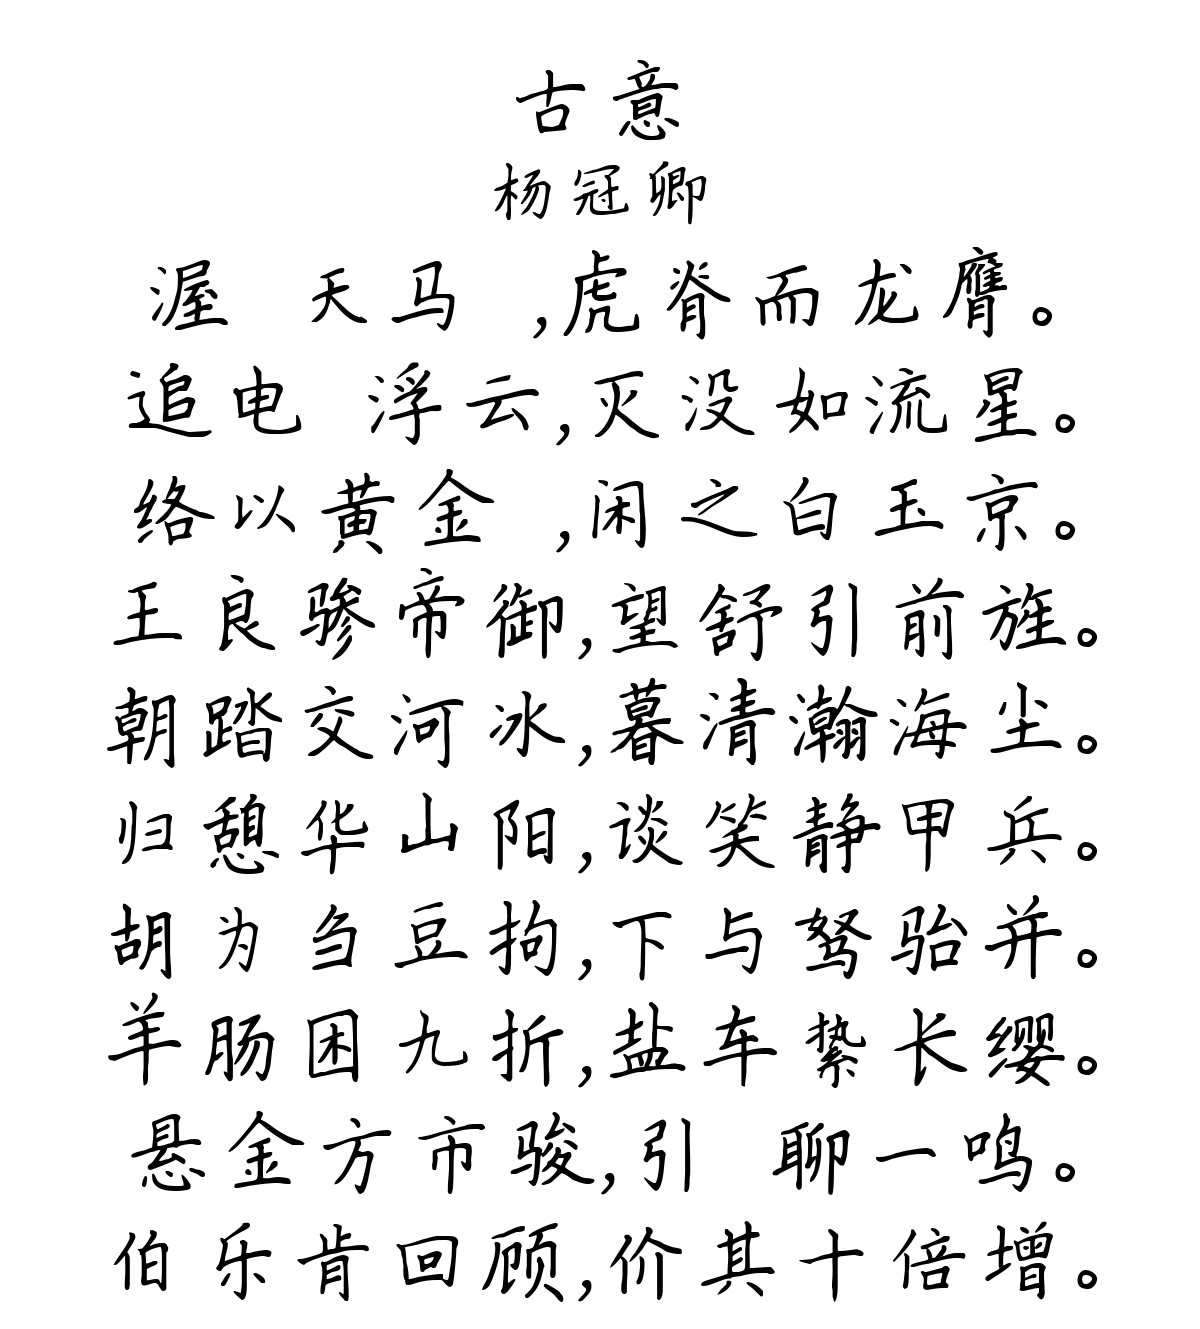 古意
杨冠卿
渥 天马 ,虎脊而龙膺。
追电 浮云,灭没如流星。
络以黄金 ,闲之白玉京。
王良骖帝御,望舒引前旌。
朝踏交河冰,暮清瀚海尘。
归憩华山阳,谈笑静甲兵。
胡为刍豆拘,下与驽骀并。
羊肠困九折,盐车絷长缨。
悬金方市骏,引 聊一鸣。
伯乐肯回顾,价其十倍增。